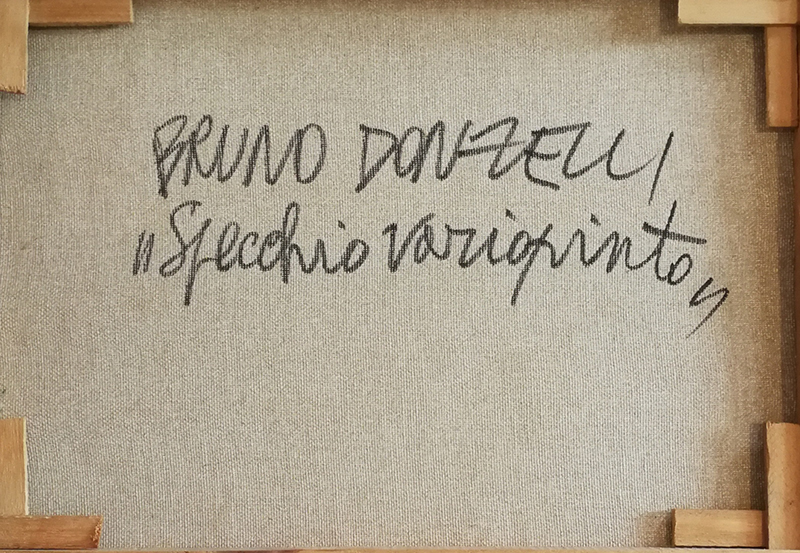 BRUNO DONZELLI
"Specchio variopinto"